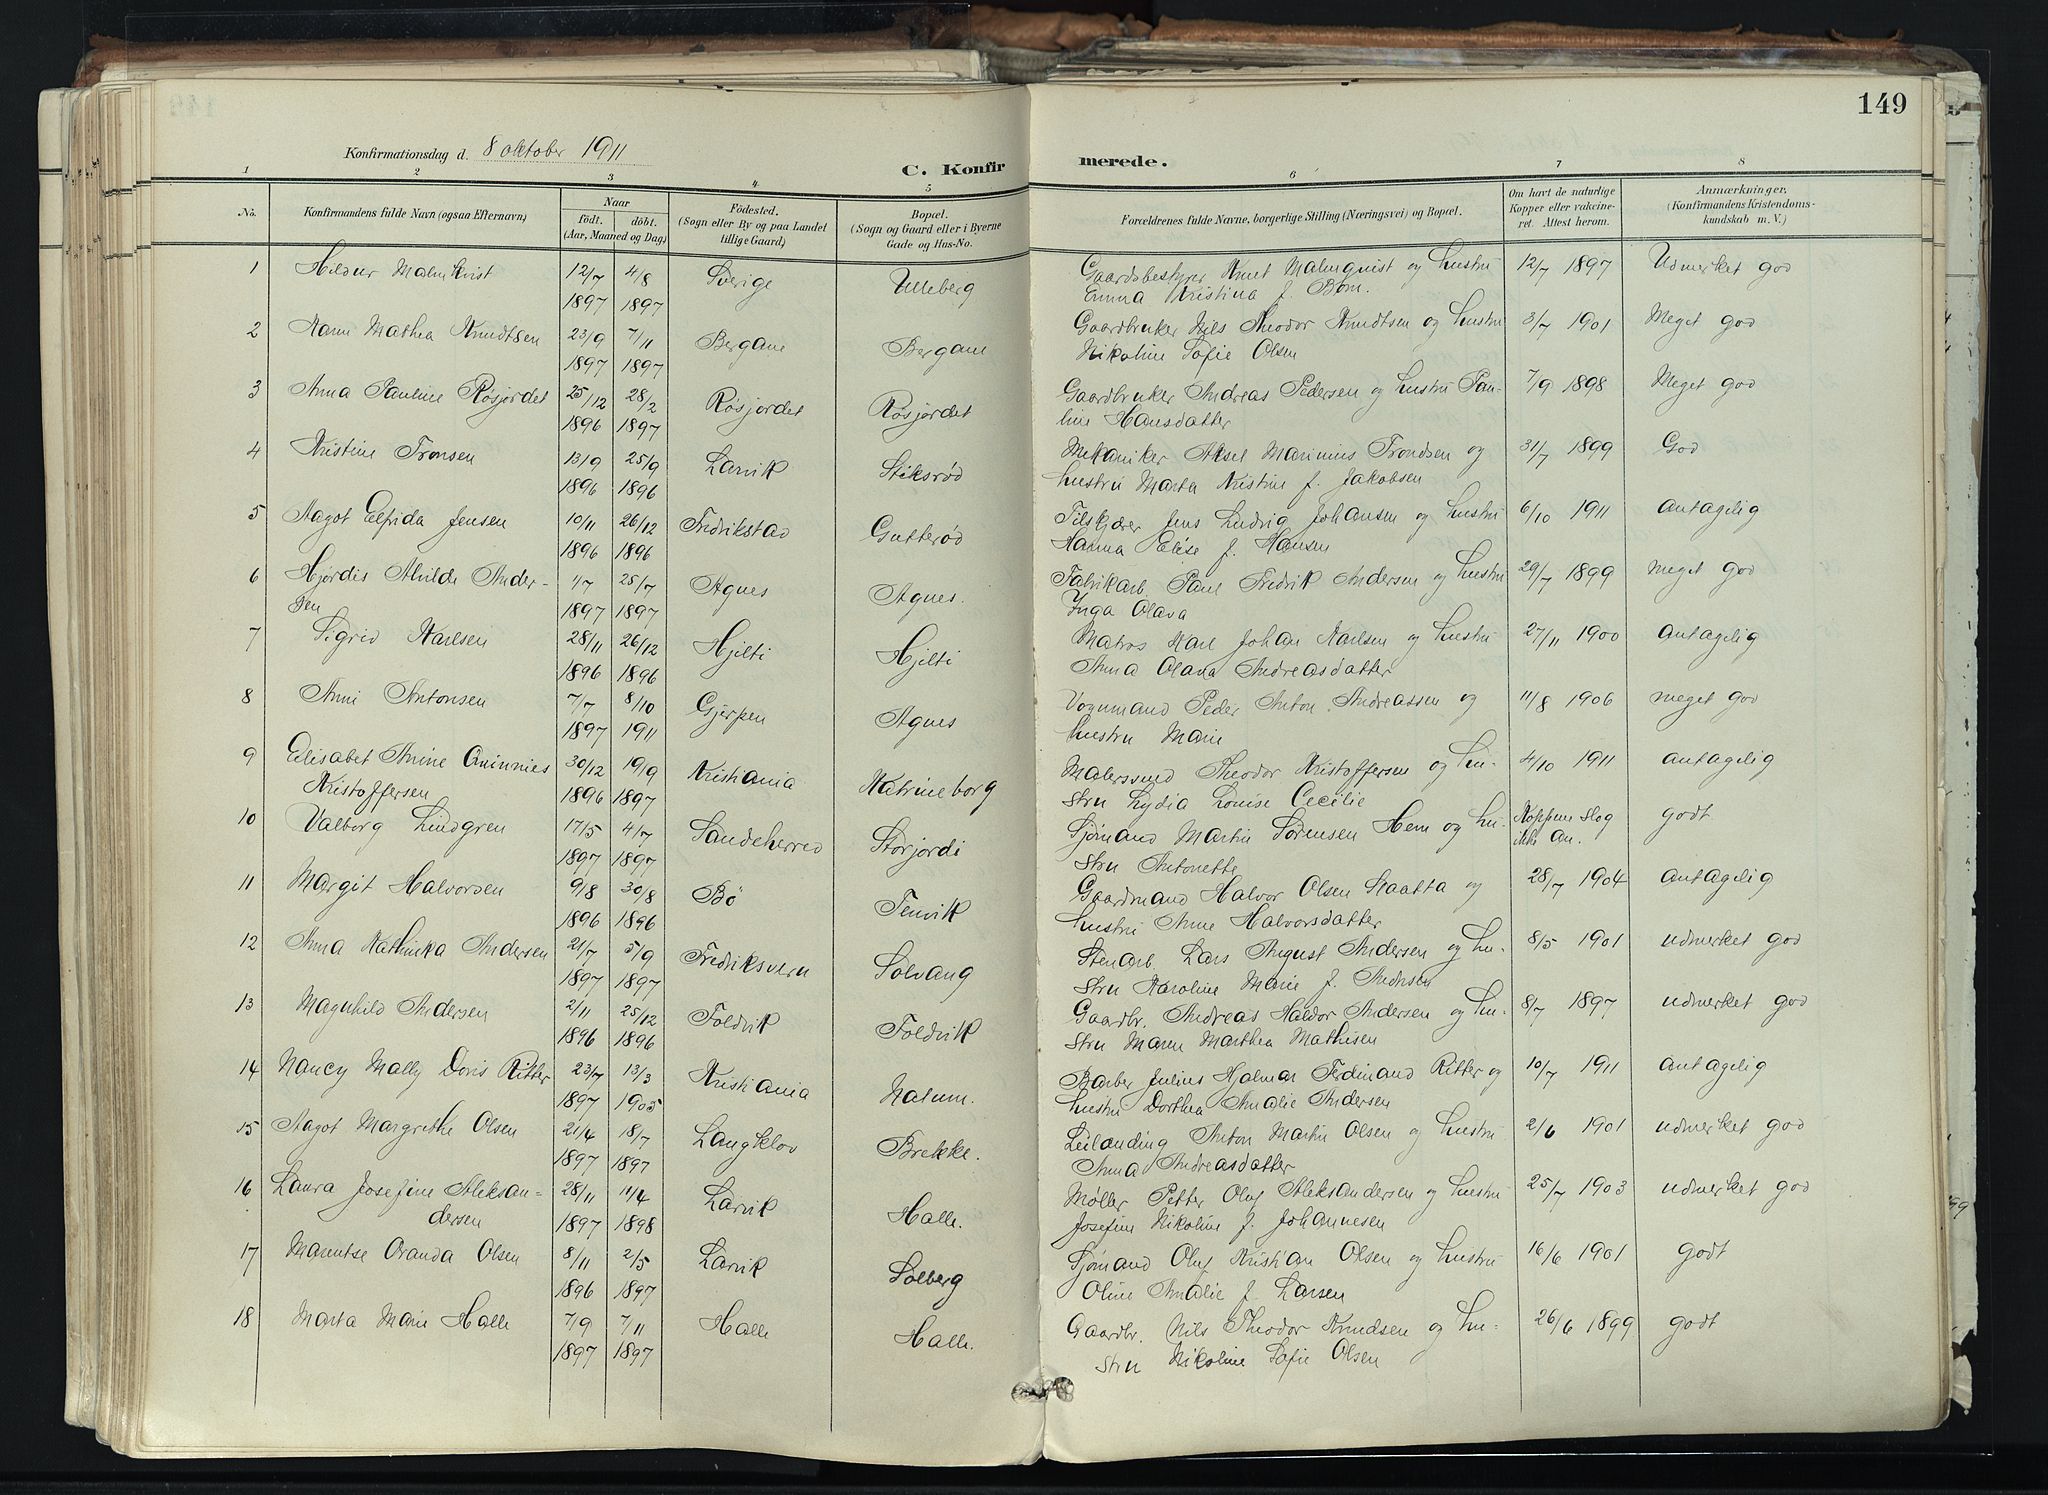 149
Konfirmationsdag d. 8 oktober 1911
C. Konfirmerede.
1 2 3 4 5 6 7 8
No.
Konfirmandens fulde Navn (ogsaa Efternavn)
Naar
födt. döbt.
(Aar, Maaned og Dag)
Födested.
(Sogn eller By og paa Landet
tillige Gaard)
Bopæl.
(Sogn og Gaard eller i Byerne
Gade og Hus-No.
Forældrenes fulde Navne, borgerlige Stilling (Næringsvei) og Bopæl.
Om havt de naturlige
Kopper eller vakcine-
ret. Attest herom.
Anmærkninger.
(Konfirmandens Kristendoms-
kundskab m. V.)
1 Hildur Malmkvist 12/7 4/8 Sverige Ulleberg Gaardsbestyrer Knut Malmquist og hustru 12/7 1897 Udmerket god
1897 1897 Emma Kristina f. Bom.
2 Mathea Knudtsen 23/9 7/11 Bergane Bergane Gaardbruker Nils Theodor Knudtsen og hustru 3/7 1901 Meget god
1897 1897 Nikoline Sofie Olsen
3 Anna Pauline Røsjordet 25/12 28/2 Røsjordet Røsjordet Gaardbruker Andreas Pedersen og hustru Pau- 7/9 1898 Meget god
1896 1897 line Hansdatter
4 Kristine Tronsen 13/9 25/9 Larvik Stiksrød Mekaniker Aksel Marinius Trondsen og 31/7 1899 God
1896 1896 hustru Marta Kristine f. Jakobsen
5 Aagot Elfrida Jensen 10/11 26/12 Fredrikstad Gutterød Tilskjærer Jens Ludvig Johansen og hustru 6/10 1911 antagelig
1896 1896 Hanna Elise f. Hansen
6 Hjørdis Alvilde Ander- 1/7 25/7 Agnes Agnes. Fabrikarb. Paul Fredrik Andersen og hustru 29/7 1899 meget god
sen 1897 1897 Inga Olava
7 Sigrid Karlsen 28/11 26/12 Hjelti Hjelti Matros Karl Johan Karlsen og hustru 27/11 1900 antagelig
1896 1896 Anna Olava Andreasdatter
8 Anni Antonsen 7/7 8/10 Gjerpen Agnes Vognmand Peder Anton Andreassen og 11/8 1906 meget god
1897 1911 hustru Marie
9 Elisabet Anine Quinnies 30/12 19/9 Kristiania Katrineborg Malersvend Theodor Kristoffersen og hu- 4/10 1911 antagelig
Kristoffersen 1896 1897 stru Lydia Louise Cecilie
10 Valborg Lindgren 17/5 4/7 Sandeherred Storjordi Sjømand Martin Sørensen Hem og hu- Koppene slog godt
1897 1897 stru Antonette ikke an.
11 Margit Halvorsen 9/8 30/8 Bø Tenvik Gaardmand Halvor Olsen Kaatta og 28/7 1904 antagelig
1896 1896 hustru Anne Halvorsdatter
12 Anna Kathinka Andersen 21/7 5/9 Fredriksvern Solvang Stenarb. Lars August Andersen og hu- 8/5 1901 udmerket god
1897 1897 stru Karoline Marie f. Andersen
13 Magnhild Andersen 2/11 25/12 Foldvik Foldvik Gaardbr. Andreas Haldor Andersen og hu- 8/7 1897 udmerket god
1896 1896 stru Maren Marthea Mathisen
14 Nancy Mally Doris Ritter 23/7 13/3 Kristiania Nalum. Barber Julius Hjalmar Ferdinand Ritter og 10/7 1911 antagelig
1897 1905 hustru Dorthea Amalie Andersen
15 Aagot Margrethe Olsen 21/4 18/7 Langklov Brekke. Leilanding Anton Martin Olsen og hustru 2/6 1901 udmerket god
1897 1897 Anna Andreasdatter
16 Laura Josefine Aleksan- 28/11 11/4 Larvik Halle. Møller Petter Oluf Aleksandersen og hustru 25/7 1903 udmerket god
dersen 1897 1898 Josefine Nikoline f. Johannesen
17 Marentse Oranda Olsen 8/11 2/5 Larvik Solberg Sjømand Oluf Kristian Olsen og hustru 16/6 1901 godt
1896 1897 Oline Amalie f. Larsen
18 Marta Marie Halle 7/9 7/11 Halle Halle. Gaardbr. Nils Theodor Knudsen og hu- 26/6 1899 godt
1897 1897 stru Nikoline Sofie Olsen